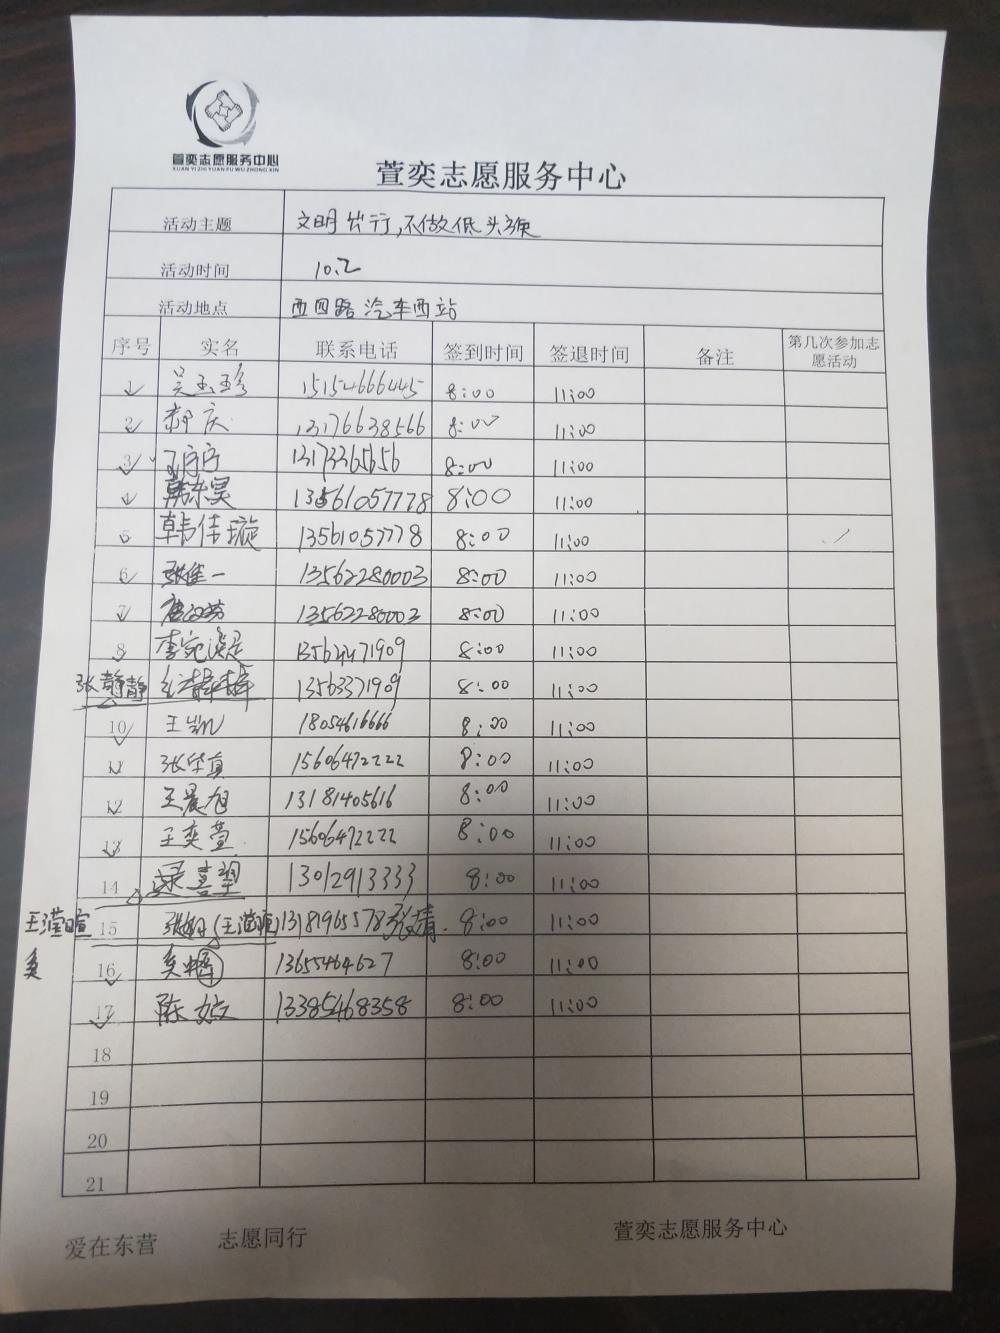 萱奕志愿服务中心
XUAN YI ZHI YUAN FU WU ZHONG XIN
萱奕志愿服务中心
活动主题 文明出行,不做低头族
活动时间 10.2
活动地点 西四路 汽车西站
序号 实名 联系电话 签到时间 签退时间 备注 第几次参加志愿活动
1 吴玉珍 15154666445 8:00 11:00
2 郝庆 13176638566 8:00 11:00
3 丁宁宁 13173365656 8:00 11:00
4 韩东昊 13561057778 8:00 11:00
5 韩佳璇 13561057778 8:00 11:00
6 张佳一 13562280003 8:00 11:00
7 13562280003 8:00 11:00
8 李宛 13564471909 8:00 11:00
张静静 13563371909 8:00 11:00
10 王凯 18054616666 8:00 11:00
11 张华真 15606472222 8:00 11:00
12 王晨旭 13181405616 8:00 11:00
13 王奕萱 15606472222 8:00 11:00
14 录喜望 13012913333 8:00 11:00
王滢暄 15 (王滢暄) 13181965578 张婧 8:00 11:00
16 13655464627 8:00 11:00
17 陈姣 13385468358 8:00 11:00
18
19
20
21
爱在东营 志愿同行 萱奕志愿服务中心